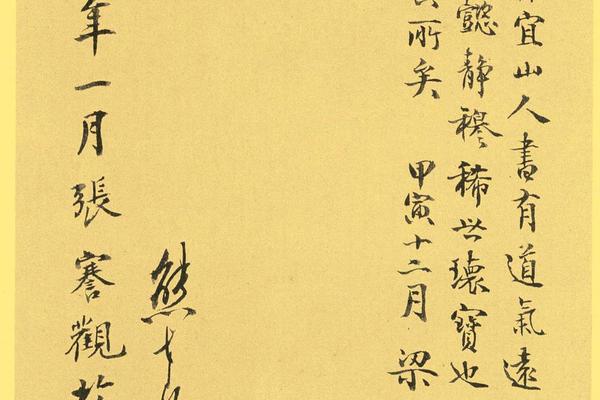 宜山人書有道氣遠
懿靜穆稀世瓌寶也
所矣 甲寅十二月 梁
熊
年一月張謇觀於